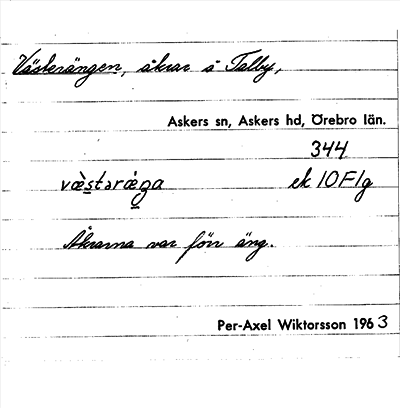 Västerängen, åkrar å Talby,
Askers sn, Askers hd, Örebro län.
344
væ̀stərǽŋa ek 10F1g
Åkrarna var förr äng.
Per-Axel Wiktorsson 1963